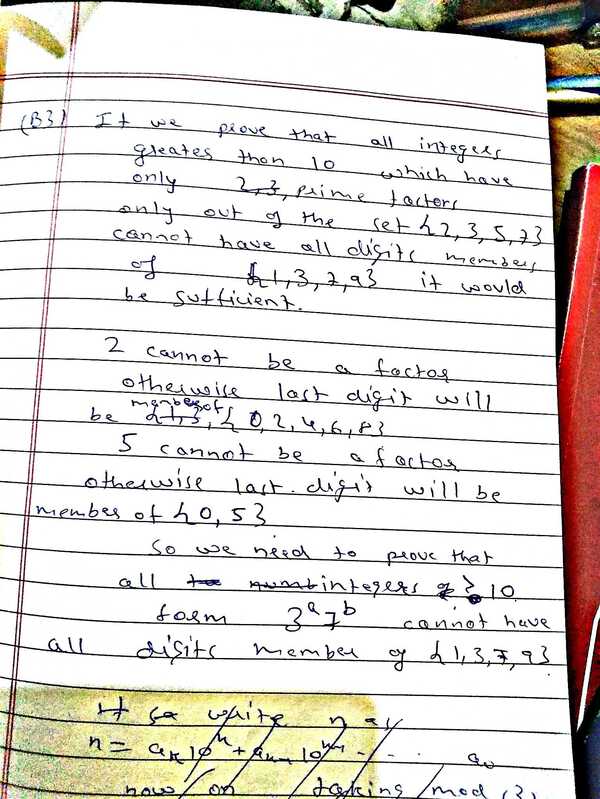 (B3) If we prove that all integers
greater than 10 which have
only 2,3, prime factors
only out of the set {2,3,5,7}
cannot have all digits members
of {1,3,7,9} it would
be sufficient.
2 cannot be a factor
otherwise last digit will
member of
be {1,3, {0,2,4,6,8}
5 cannot be a factor
otherwise last digit will be
member of {0,5}
So we need to prove that
all integers > 10
form 3^a 7^b cannot have
all digits member of {1,3,7,9}
If so write n as
n = a_k 10^k + a_{k-1} 10^{k-1} - - . a_0
now on taking mod (3)